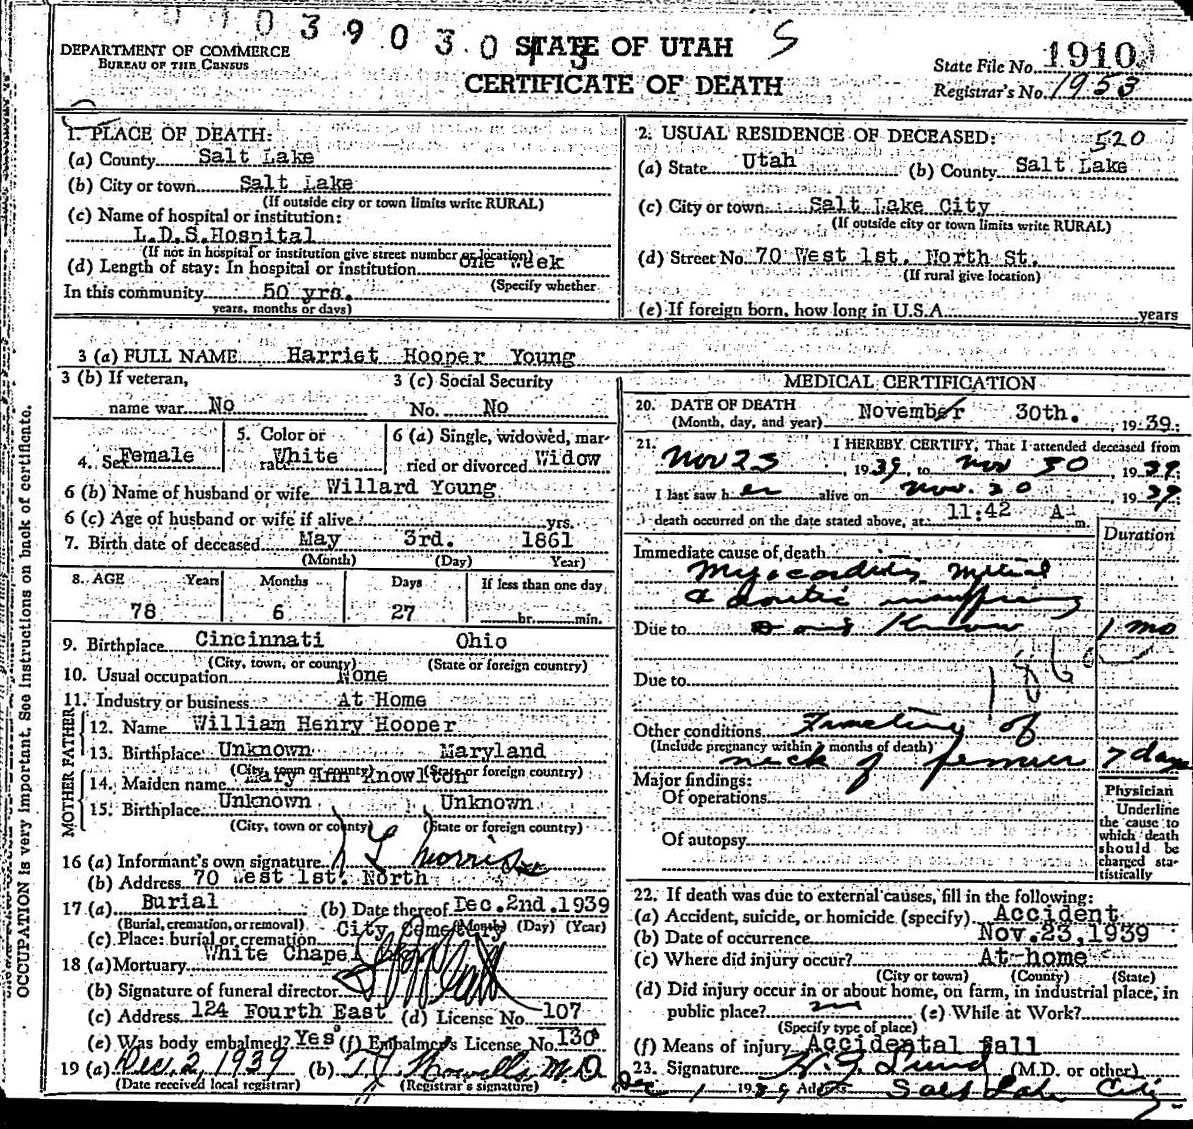 0 0 0 3 9 0 3 0 1 3
STATE OF UTAH S
DEPARTMENT OF COMMERCE
BUREAU OF THE CENSUS
CERTIFICATE OF DEATH
State File No. 1910
Registrar's No. 1953
1. PLACE OF DEATH:
(a) County Salt Lake
(b) City or town Salt Lake
(If outside city or town limits write RURAL)
(c) Name of hospital or institution:
L.D.S.Hospital
(If not in hospital or institution give street number or location)
(d) Length of stay: In hospital or institution one week
(Specify whether
In this community 50 yrs.
years, months or days)
2. USUAL RESIDENCE OF DECEASED: 520
(a) State Utah (b) County Salt Lake
(c) City or town Salt Lake City
(If outside city or town limits write RURAL)
(d) Street No. 70 West 1st. North St.
(If rural give location)
(e) If foreign born, how long in U.S.A. years
3 (a) FULL NAME Harriet Hooper Young
3 (b) If veteran,
name war No
3 (c) Social Security
No. No
4. Sex Female
5. Color or
race White
6 (a) Single, widowed, mar-
ried or divorced Widow
6 (b) Name of husband or wife Willard Young
6 (c) Age of husband or wife if alive yrs.
7. Birth date of deceased May 3rd. 1861
(Month) (Day) Year)
8. AGE Years Months Days If less than one day
78 6 27 hr. min.
9. Birthplace Cincinnati Ohio
(City, town, or county) (State or foreign country)
10. Usual occupation None
11. Industry or business At Home
FATHER
12. Name William Henry Hooper
13. Birthplace Unknown Maryland
(City, town or county) (State or foreign country)
MOTHER
14. Maiden name Mary Ann Knowlton
15. Birthplace Unknown Unknown
(City, town or county) (State or foreign country)
16 (a) Informant's own signature Morris
(b) Address 70 West 1st. North
17 (a) Burial (b) Date thereof Dec.2nd.1939
(Burial, cremation, or removal) (Month) (Day) (Year)
(c) Place: burial or cremation City Cemetery
18 (a) Mortuary White Chapel
(b) Signature of funeral director
(c) Address 124 Fourth East (d) License No. 107
(e) Was body embalmed? Yes (f) Embalmer's License No. 130
19 (a) Dec. 2, 1939 (b) T.J. Howells M.D.
(Date received local registrar) (Registrar's signature)
MEDICAL CERTIFICATION
20. DATE OF DEATH November 30th. 1939.
(Month, day, and year)
21. I HEREBY CERTIFY, That I attended deceased from
Nov 23, 1939, to Nov 30 1939.
I last saw her alive on Nov. 30 1939
death occurred on the date stated above, at 11:42 A m.
Duration
Immediate cause of death
Myocarditis Mitral
& Aortic
Due to 1 mo
186
Due to
Other conditions of
(Include pregnancy within 3 months of death)
neck of femur 7 days
Major findings:
Of operations
Of autopsy
Physician
Underline
the cause to
which death
should be
charged sta-
tistically
22. If death was due to external causes, fill in the following:
(a) Accident, suicide, or homicide (specify) Accident
(b) Date of occurrence Nov.23,1939
(c) Where did injury occur? At home
(City or town) (County) (State)
(d) Did injury occur in or about home, on farm, in industrial place, in
public place? (e) While at Work?
(Specify type of place)
(f) Means of injury Accidental Fall
23. Signature Lund (M.D. or other)
Dec 1 1939 Address Salt Lake City
OCCUPATION is very important. See instructions on back of certificate.